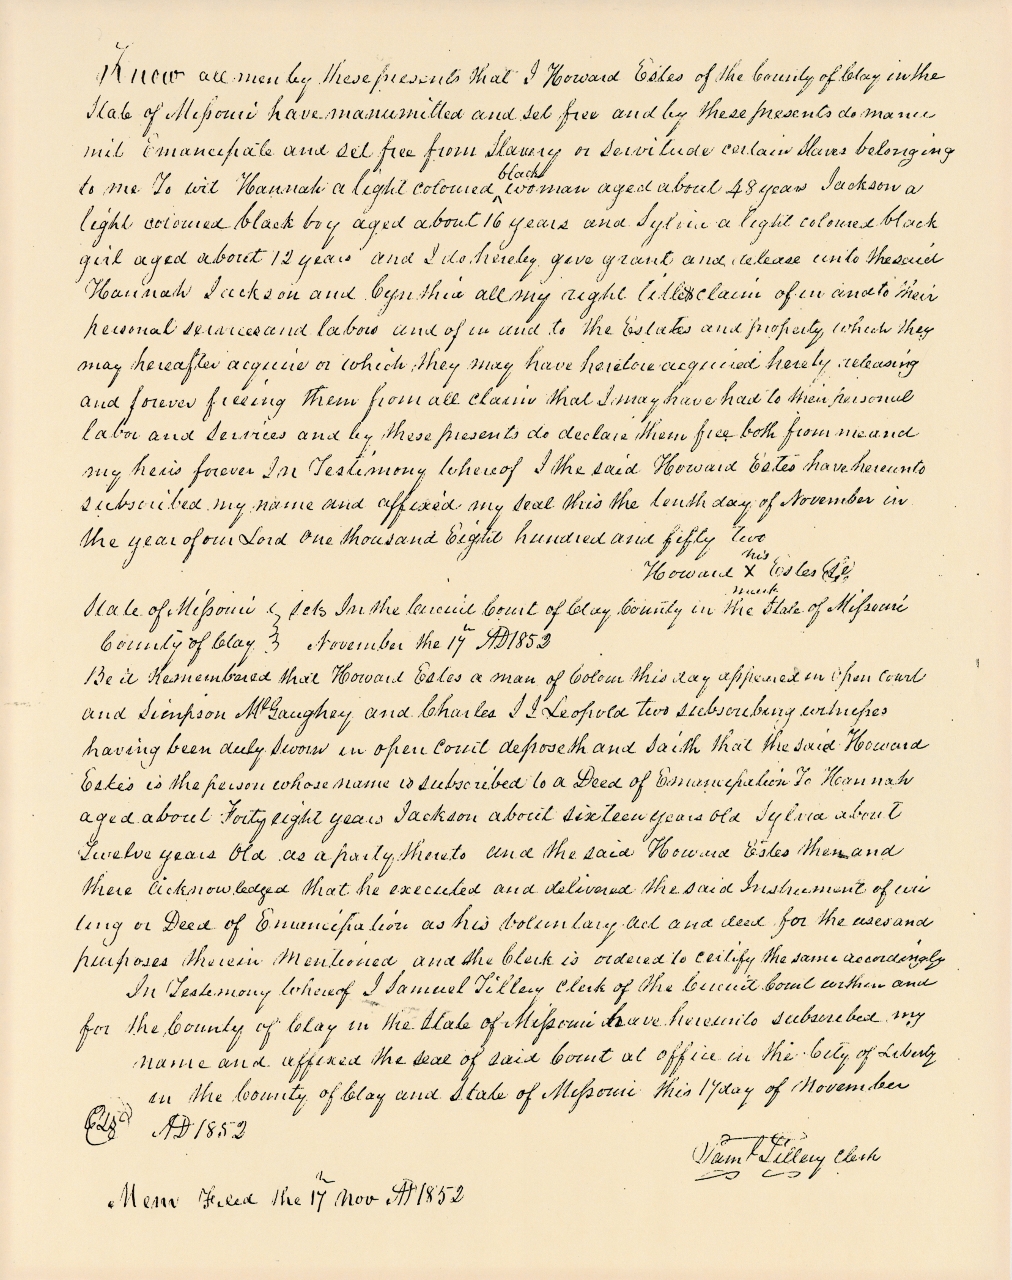 Know all men by these presents that I Howard Estes of the County of Clay in the
State of Missouri have manumitted and set free and by these presents do manu
mit Emancipate and set free from Slavery or servitude certain slaves belonging
to me To wit Hannah a light coloured black woman aged about 48 years Jackson a
light coloured black boy aged about 16 years and Sylvia a light coloured black
girl aged about 12 years and I do hereby give grant and release unto the said
Hannah Jackson and Cynthia all my right title & claim of in and to their
personal services and labors and of in and to the Estates and property which they
may hereafter acquire or which they may have heretore acquired hereby releasing
and forever freeing them from all claim that I may have had to their personal
labor and services and by these presents do declare them free both from me and
my heirs forever In Testimony Whereof I the said Howard Estes have hereunto
subscribed my name and affixed my seal this the tenth day of November in
the year of our Lord One thousand Eight hundred and fifty two
Howard his X mark Estes
State of Missouri } Sct In the Circuit Court of Clay County in the State of Missouri
County of Clay } November the 17th AD 1852
Be it Remembered that Howard Estes a man of Colour this day appeared in Open Court
and Simpson McGaughey and Charles J J Leopold two subscribing witnesses
having been duly sworn in open court deposeth and saith that the said Howard
Estes is the person whose name is subscribed to a Deed of Emancipation To Hannah
aged about Forty eight years Jackson about sixteen years old Sylvia about
Twelve years Old as a party thereto and the said Howard Estes then and
there acknowledged that he executed and delivered the said Instrument of wri
ting or Deed of Emancipation as his voluntary act and deed for the uses and
purposes therein mentioned and the Clerk is ordered to certify the same accordingly
In Testimony Whereof I Samuel Tillery Clerk of the Circuit Court within and
for the County of Clay in the State of Missouri have hereunto subscribed my
name and affixed the seal of said Court at office in the City of Liberty
in the County of Clay and State of Missouri this 17 day of November
AD 1852
Saml Tillery Clerk
Mem Filed the 17th Nov AD 1852